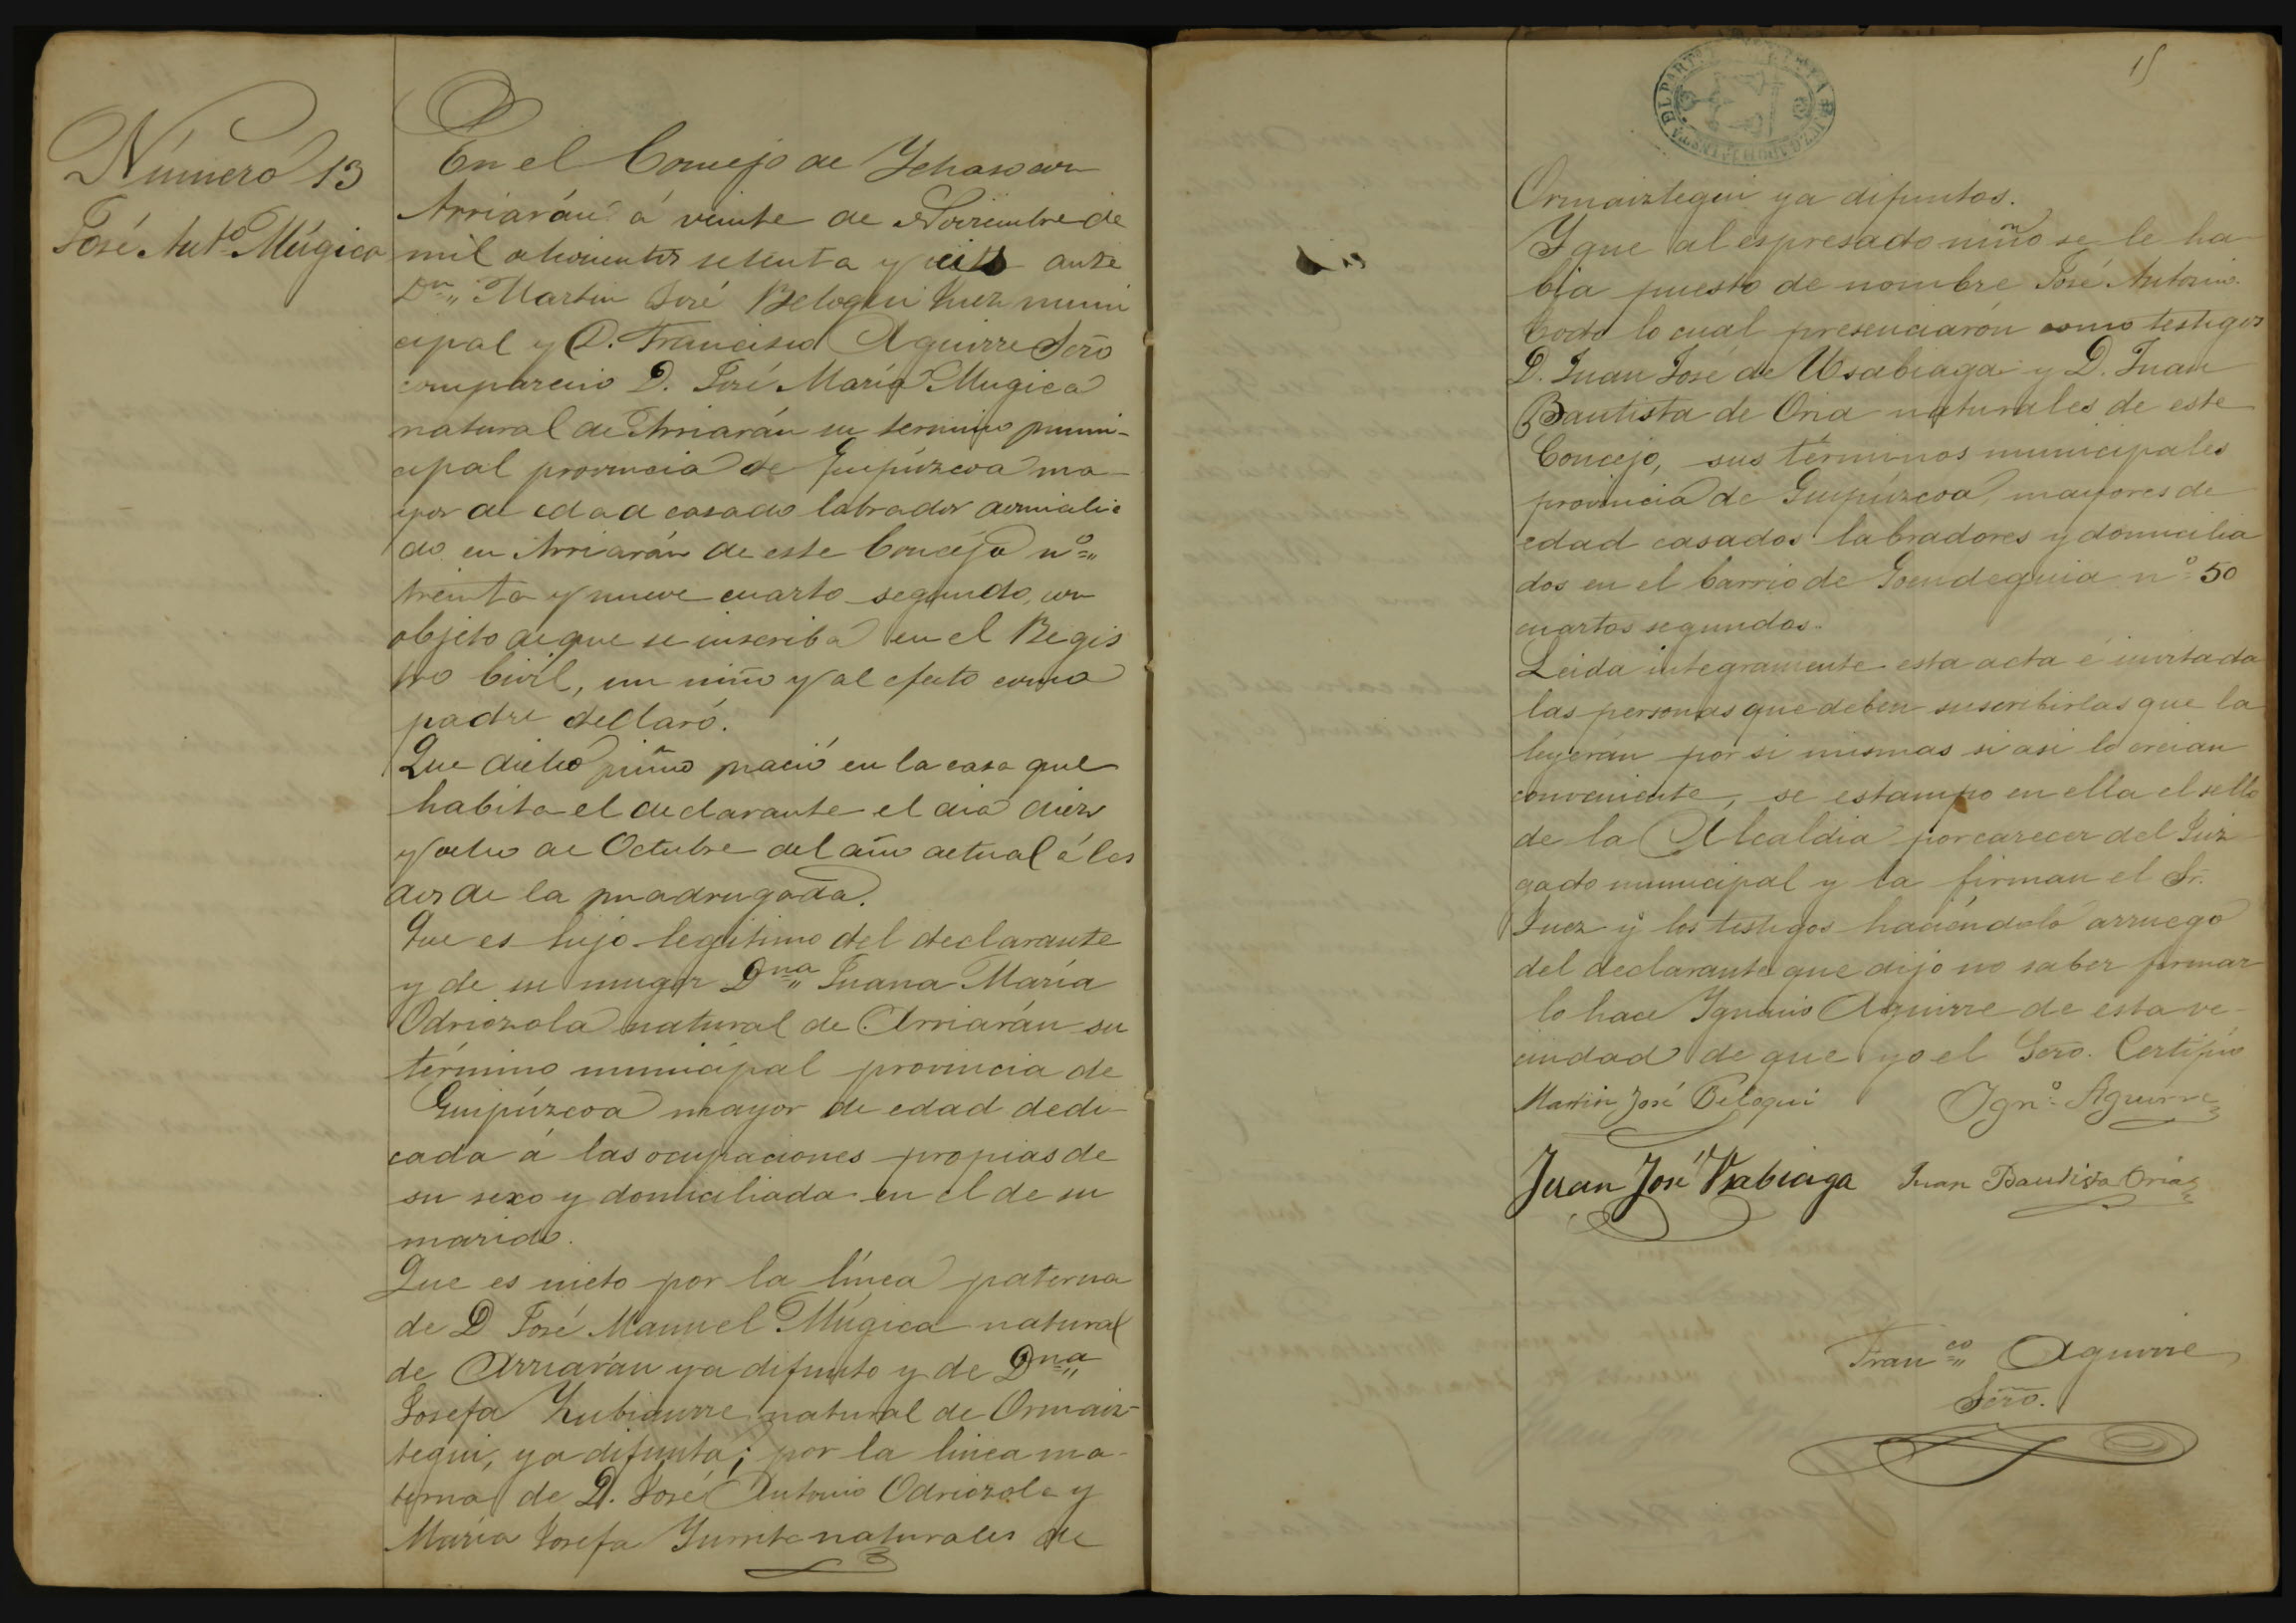 Número 13
José Antº Múgica
En el Concejo de Ichaso con
Arriarán á veinte de Noviembre de
mil ochocientos setenta y seis ante
Dn Martin José Beloqui Juez muni
cipal y D. Francisco Aguirre Srio
compareció D. José María Mugica
natural de Arriarán su termino muni-
cipal provincia de Guipúzcoa ma-
yor de edad casado labrador domicilia
do en Arriarán de este Concejo nº
treinta y nueve cuarto segundo, con
objeto de que se inscriba en el Regis
tro Civil, un niño y al efecto como
padre declaró.
Que dicho niño nació en la casa que
habita el declarante el dia diez
y ocho de Octubre del año actual á las
dos de la madrugada.
Que es hijo legítimo del declarante
y de su muger Dna Juana María
Odriozola natural de Arriarán su
término municipal provincia de
Guipúzcoa mayor de edad dedi-
cada á las ocupaciones propias de
su sexo y domiciliada en el de su
marido.
Que es nieto por la línea paterna
de D José Manuel Múgica natural
de Arriarán ya difunto y de Dna
Josefa Zubiaurre natural de Ormaiz-
tegui, ya difunta; por la linea ma-
terna de D. José Antonio Odriozola y
María Josefa Yurrita naturales de
15
Ormaiztegui ya difuntos.
Y que al espresado niño se le ha
bía puesto de nombre José Antonio.
todo lo cual presenciarón como testigos
D. Juan José de Usabiaga y D. Juan
Bautista de Oria naturales de este
Concejo, sus términos municipales
provincia de Guipúzcoa, mayores de
edad casados labradores y domicilia
dos en el barrio de nº 50
cuartos segundos.
Leida integramente esta acta é invitada
las personas que deben suscribirlas que la
leyerán por si mismas si asi lo creian
conveniente, se estampo en ella el sello
de la Alcaldia por carecer del Juz
gado municipal y la firman el Sr.
Juez y los testigos haciéndolo arruego
del declarante que dijo no saber firmar
lo hace Ignacio Aguirre de esta ve-
cindad de que yo el Srio. Certifico
Martin José Beloqui Ignº Aguirre
Juan José Usabiaga Juan Bautista Oria
Franco Aguirre
Srio.